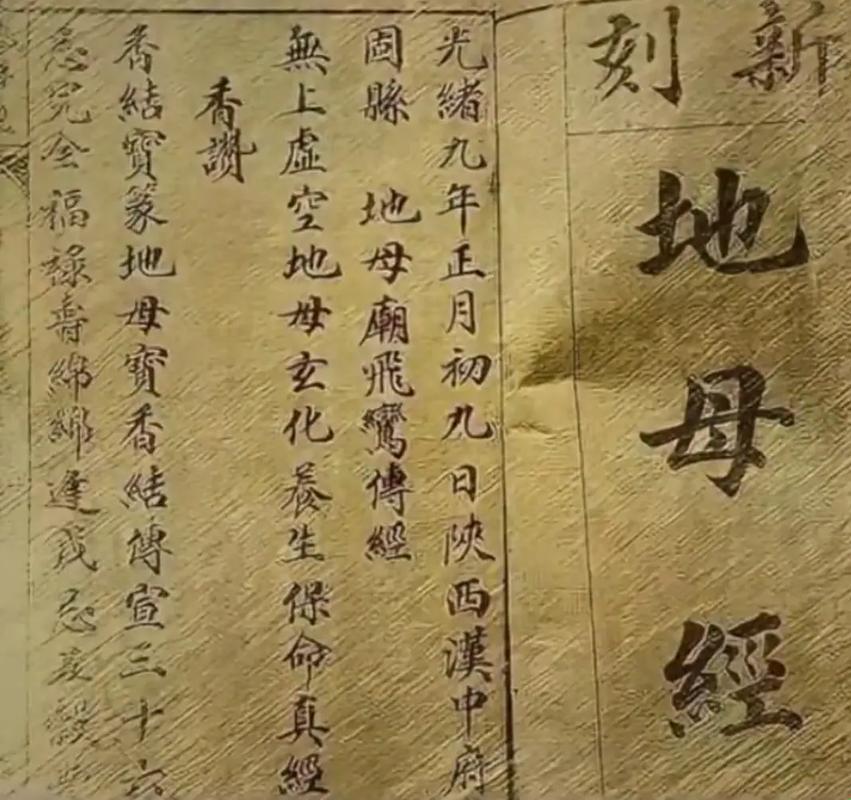 新刻
地母經
光緒九年正月初九日陝西漢中府
固縣 地母廟飛鸞傳經
無上虛空地母玄化養生保命真經
香讚
香結寶篆地母寶香結傳宣三十六
福祿壽綿綿逢戊忌